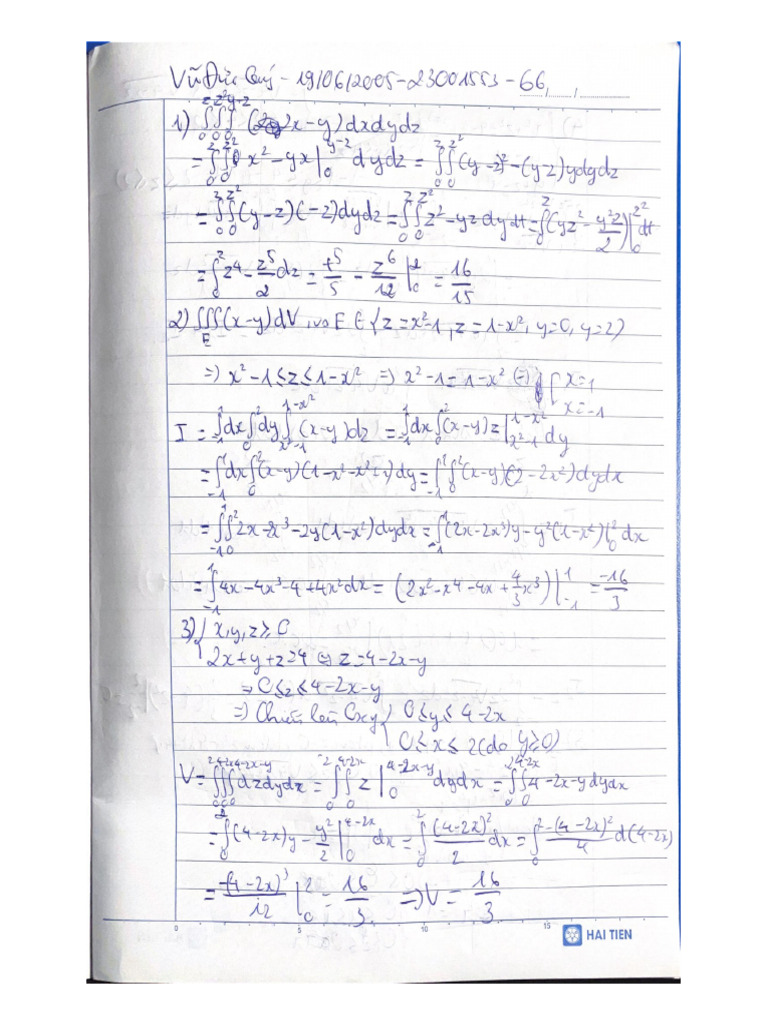 Vũ Đức Quý - 19/06/2005 - 23001553 - 66
1) ∫₀²∫₀^{z²}∫₀^{y-z} (2x-y)dxdydz
= ∫₀²∫₀^{z²} x² - yx |₀^{y-z} dydz = ∫₀²∫₀^{z²} (y-z)² - (y-z)y dydz
= ∫₀²∫₀^{z²} (y-z)(-z)dydz = ∫₀²∫₀^{z²} z² - yz dy dt = ∫₀² (yz² - y²z/2)|₀^{z²} dt
= ∫₀² z⁴ - z⁵/2 dz = t⁵/5 - z⁶/12 |₀² = 16/15
2) ∫∫∫_E (x-y)dV, với E ∈ {z=x²-1, z=1-x², y=0, y=2}
⇒ x²-1 ≤ z ≤ 1-x² ⇒ x²-1 = 1-x² ⇔ [x=1
x=-1
I = ∫₋₁¹dx∫₀²dy∫_{x²-1}^{1-x²} (x-y)dz = ∫₋₁¹dx∫₀²(x-y)z|_{x²-1}^{1-x²} dy
= ∫₋₁¹dx∫₀²(x-y)(1-x²-x²+1)dy = ∫₋₁¹∫₀²(x-y)(2-2x²)dydx
= ∫₋₁¹∫₀² 2x-2x³-2y(1-x²)dydx = ∫₋₁¹(2x-2x³)y-y²(1-x²)|₀² dx
= ∫₋₁¹ 4x-4x³-4+4x²dx = (2x²-x⁴-4x+4/3x³)|₋₁¹ = -16/3
3) { x,y,z ≥ 0
2x+y+z=4 ⇔ z=4-2x-y
⇒ 0≤z≤4-2x-y
⇒ Chiếu lên Oxy { 0≤y≤4-2x
0≤x≤2 (do y≥0)
V = ∫₀²∫₀^{4-2x}∫₀^{4-2x-y} dzdydx = ∫₀²∫₀^{4-2x} z|₀^{4-2x-y} dydx = ∫₀²∫₀^{4-2x} 4-2x-y dydx
= ∫₀²(4-2x)y - y²/2 |₀^{4-2x} dx = ∫₀² (4-2x)²/2 dx = ∫₀² -(4-2x)²/4 d(4-2x)
= -(4-2x)³/12 |₀² = 16/3 ⇒ V = 16/3
0 5 10 15
HAI TIEN